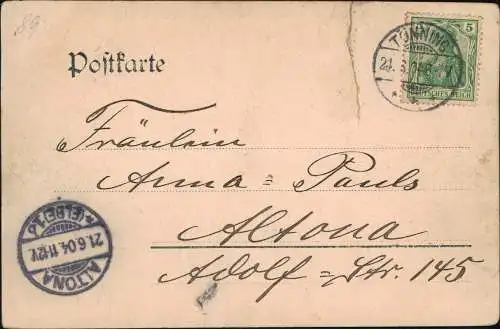 89
TÖNNING
5
21.6.
DEUTSCHES REICH
Postkarte
Fräulein
Anna = Pauls
Altona
Adolf = Str. 145
* (ELBE) 1 P
21.6.04. 11-12V
ALTONA